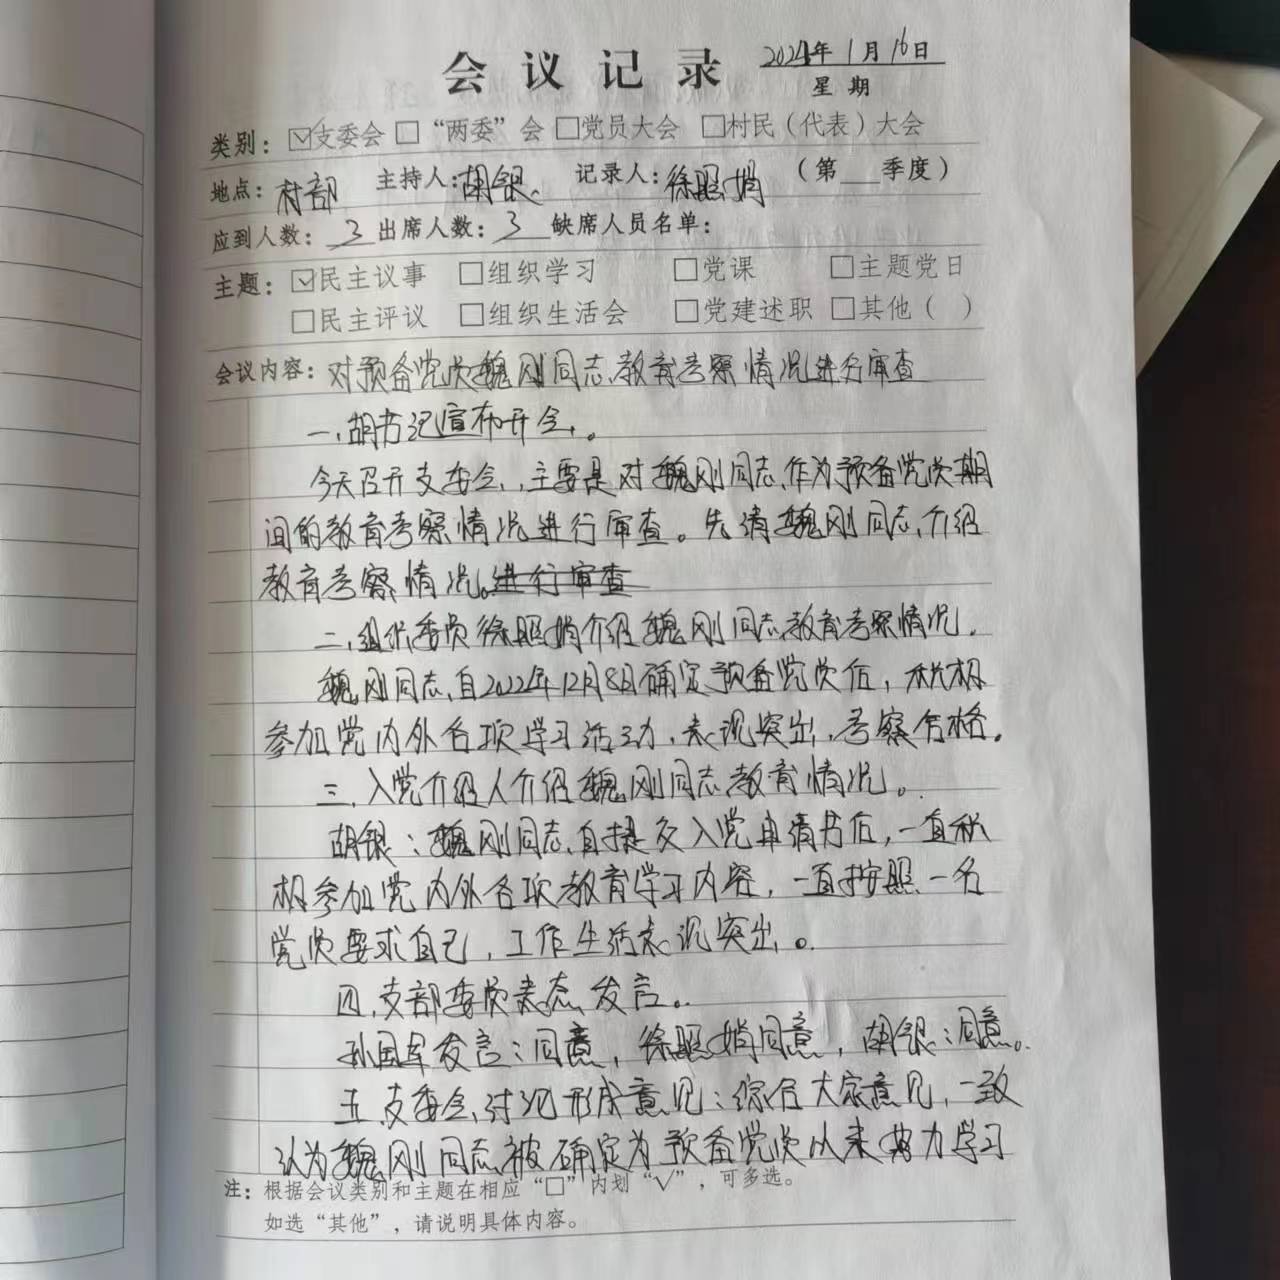 会议记录 2024年1月16日
星期
类别：☑支委会 □“两委”会 □党员大会 □村民（代表）大会
地点：村部 主持人：胡银 记录人：徐照娟 （第__季度）
应到人数：3 出席人数：3 缺席人员名单：
主题：☑民主议事 □组织学习 □党课 □主题党日
□民主评议 □组织生活会 □党建述职 □其他（ ）
会议内容：对预备党员魏刚同志教育考察情况进行审查
一、胡书记宣布开会。
今天召开支委会，主要是对魏刚同志作为预备党员期
间的教育考察情况进行审查。先请魏刚同志介绍
教育考察情况。进行审查
二、组织委员徐照娟介绍魏刚同志教育考察情况。
魏刚同志自2022年12月8日确定预备党员后，积极
参加党内外各项学习活动，表现突出，考察合格。
三、入党介绍人介绍魏刚同志教育情况。
胡银：魏刚同志自提交入党申请书后，一直积
极参加党内外各项教育学习内容，一直按照一名
党员要求自己，工作生活表现突出。
四、支部委员表态发言。
孙国军发言：同意，徐照娟同意，胡银：同意。
五、支委会讨论形成意见：综合大家意见，一致
认为魏刚同志被确定为预备党员以来努力学习
注：根据会议类别和主题在相应“□”内划“√”，可多选。
如选“其他”，请说明具体内容。